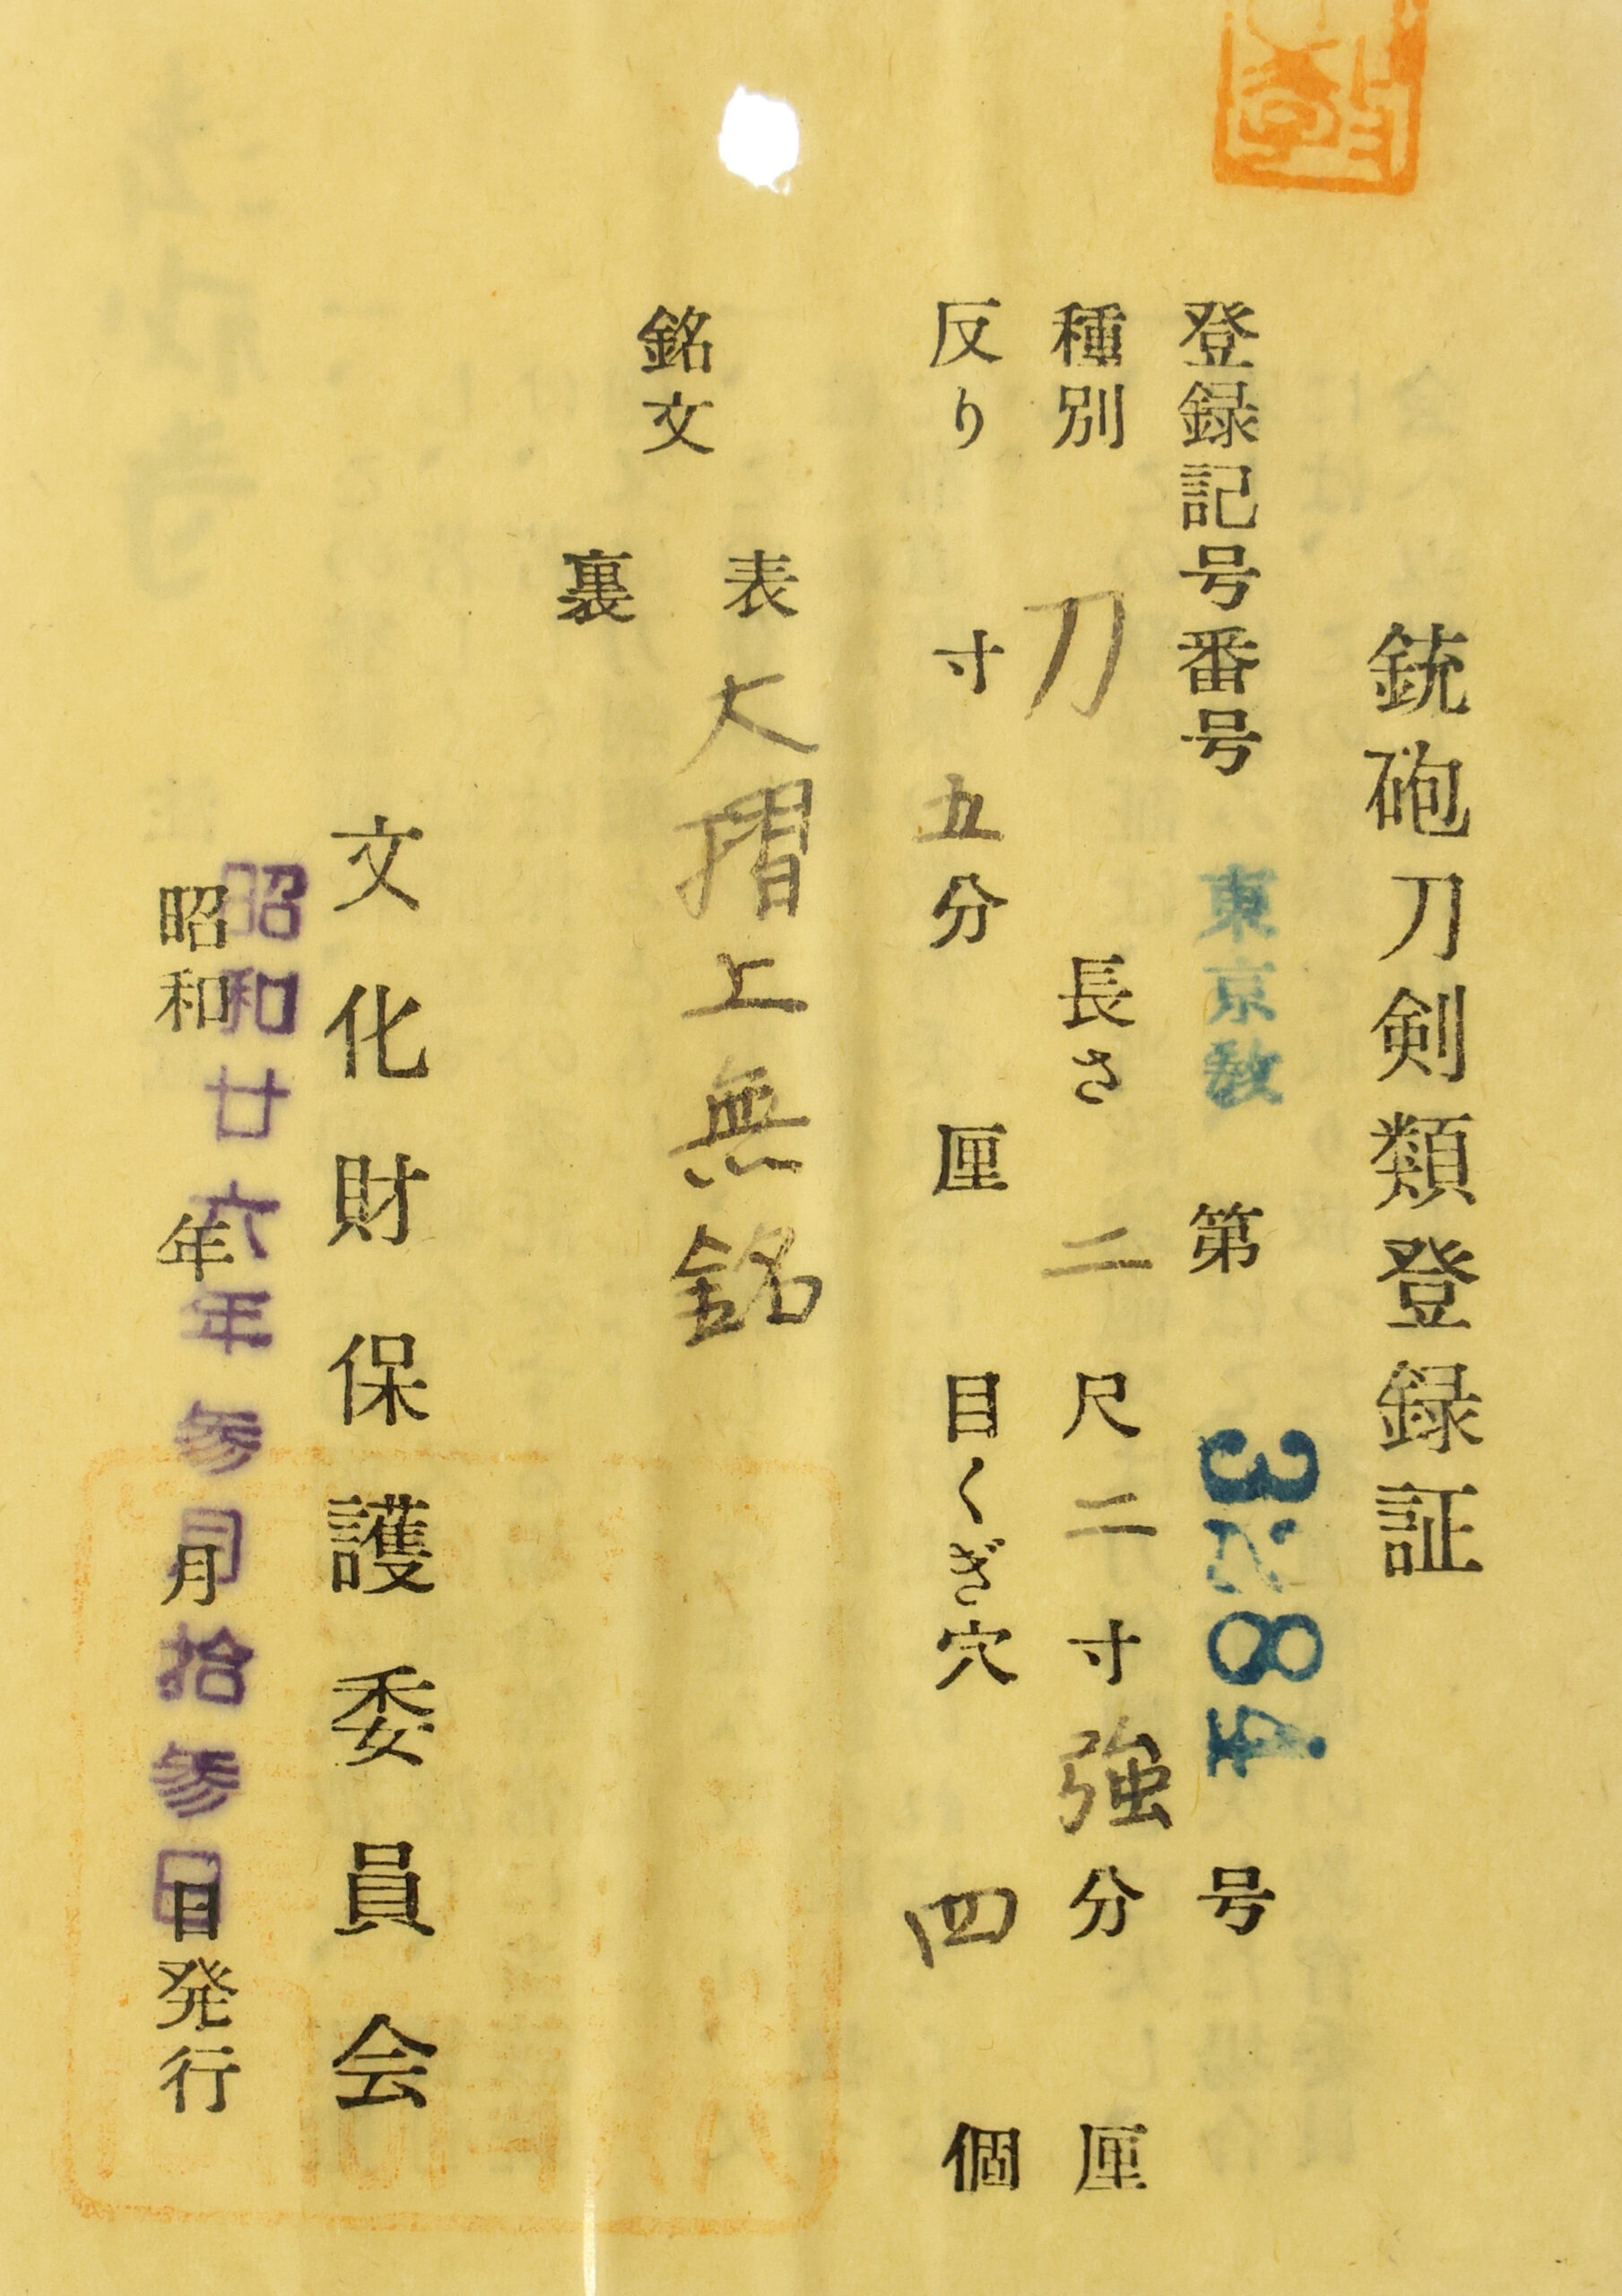 銃砲刀剣類登録証
登録記号番号 東京教 第 3284 号
種別 刀 長さ 二尺二寸強分 厘
反り 寸五分 厘 目くぎ穴 四 個
銘文
表 大摺上無銘
裏
文化財保護委員会
昭和廿六年参月拾参日
昭和 年 月 日発行